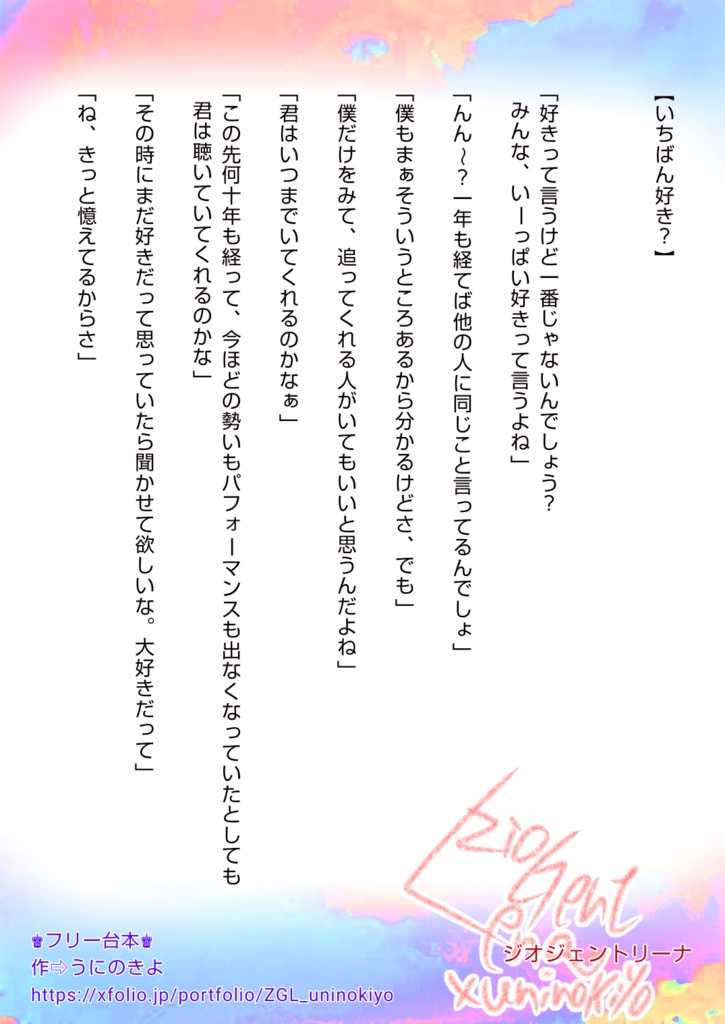 【いちばん好き？】
「好きって言うけど一番じゃないんでしょう？
みんな、いーっぱい好きって言うよね」
「んん～？一年も経てば他の人に同じこと言ってるんでしょ」
「僕もまぁそういうところあるから分かるけどさ、でも」
「僕だけをみて、追ってくれる人がいてもいいと思うんだよね」
「君はいつまでいてくれるのかなぁ」
「この先何十年も経って、今ほどの勢いもパフォーマンスも出なくなっていたとしても
君は聴いていてくれるのかな」
「その時にまだ好きだって思っていたら聞かせて欲しいな。大好きだって」
「ね、きっと憶えてるからさ」
♛フリー台本♛
作⇨うにのきよ
https://xfolio.jp/portfolio/ZGL_uninokiyo
ジオジェントリーナ
xuninokiyo